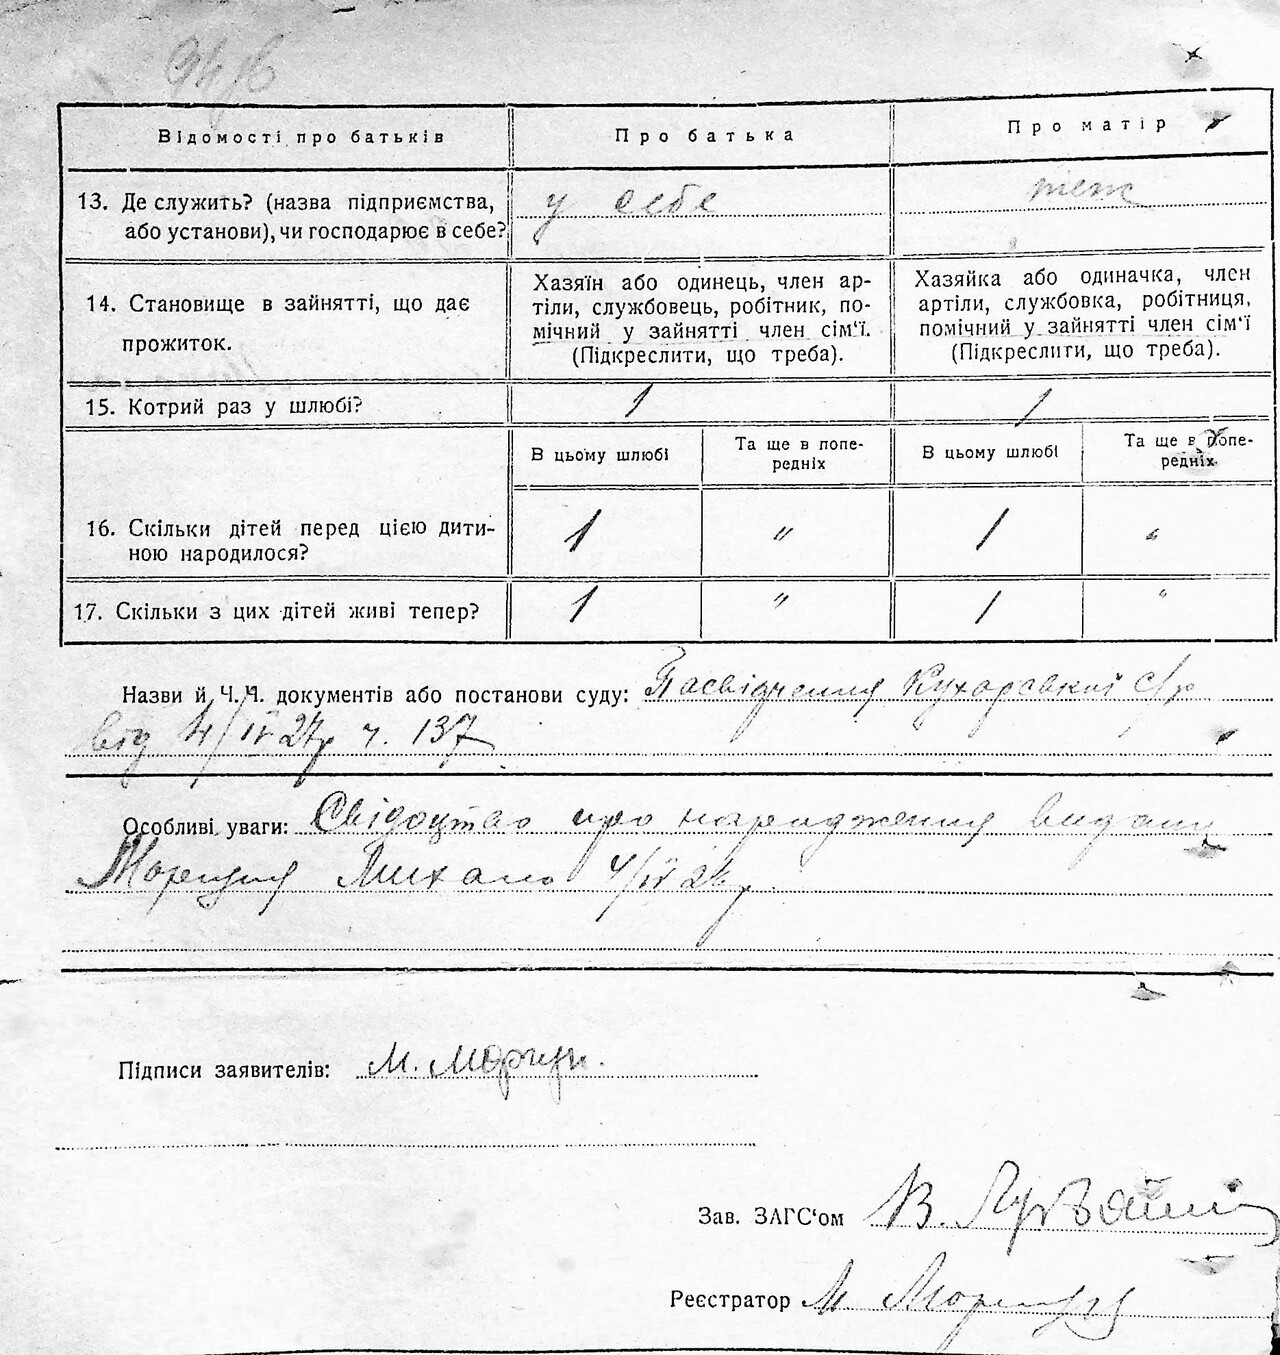 Відомості про батьків
Про батька
Про матір
13. Де служить? (назва підприємства,
або установи), чи господарює в себе?
у себе
теж
14. Становище в зайнятті, що дає
прожиток.
Хазяїн або одинець, член ар-
тіли, службовець, робітник, по-
мічний у зайнятті член сім'ї.
(Підкреслити, що треба).
Хазяйка або одиначка, член
артіли, службовка, робітниця,
помічний у зайнятті член сім'ї
(Підкреслити, що треба).
15. Котрий раз у шлюбі?
1
1
В цьому шлюбі
Та ще в попе-
редніх
В цьому шлюбі
Та ще в попе-
редніх
16. Скільки дітей перед цією дити-
ною народилося?
1
"
1
"
17. Скільки з цих дітей живі тепер?
1
"
1
"
Назви й Ч.Ч. документів або постанови суду: Посвідчення Кухарської с/р
від 4/IV 27р ч. 137
Особливі уваги: Свідоцтво про народження видано
Михало 4/IV 27р
Підписи заявителів: М. Моргун.
Зав. ЗАГС'ом В.
Реєстратор М.